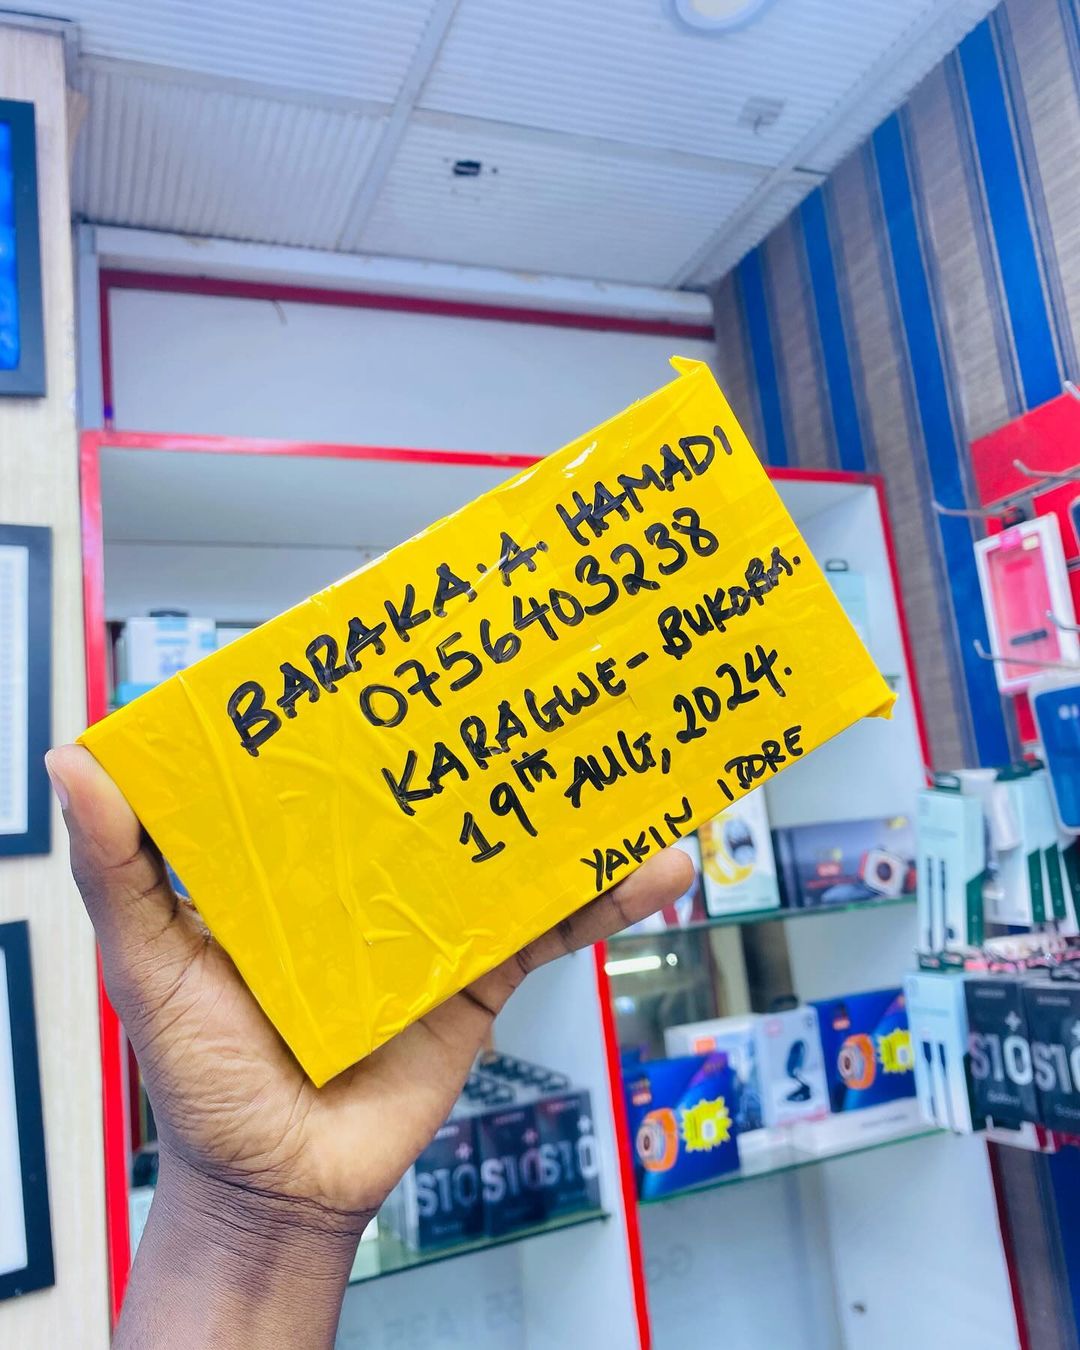 BARAKA.A. HAMADI
0756403238
KARAGWE - BUKOBA.
19th AUG, 2024.
YAKIN ISTORE
S10
S10
S10
S10
S10